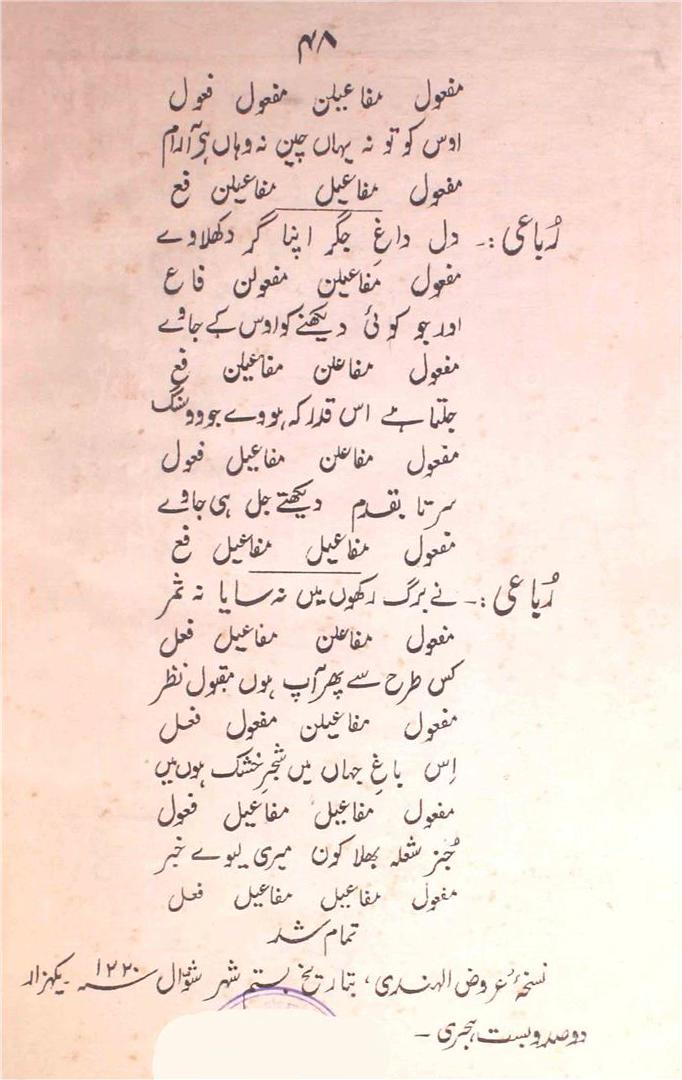 ۴۸
مفعول مفاعیلن مفعول فعول
اوس کو تو نہ یہاں چین نہ وہاں ہی آرام
مفعول مفاعیل مفاعیلن فع
رُباعی :۔ دل داغِ جگر اپنا گر دکھلاوے
مفعول مفاعیلن مفعولن فاع
اور جو کوئی دیکھنے کو اوس کے جاوے
مفعول مفاعلن مفاعیلن فع
جلتا ہے اس قدر کہ ہووے جو وو سنگ
مفعول مفاعلن مفاعیل فعول
سر تا بقدم دیکھتے جل ہی جاوے
مفعول مفاعیل مفاعیل فع
رُباعی :۔ نے برگ رکھوں میں نہ سایا نہ ثمر
مفعول مفاعلن مفاعیل فعل
کس طرح سے پھر آپ ہوں مقبول نظر
مفعول مفاعیلن مفعول فعل
اِس باغِ جہاں میں شجرِ خشک ہوں میں
مفعول مفاعیل مفاعیل فعول
جُز شعلہ بھلا کون میری لیوے خبر
مفعول مفاعیل مفاعیل فعل
تمام شد
نسخۂ عروض الہندی، بتاریخ بستم شہر شوّال ۱۲۲۰ سنہ یکہزار
دو صد و بست ہجری ۔